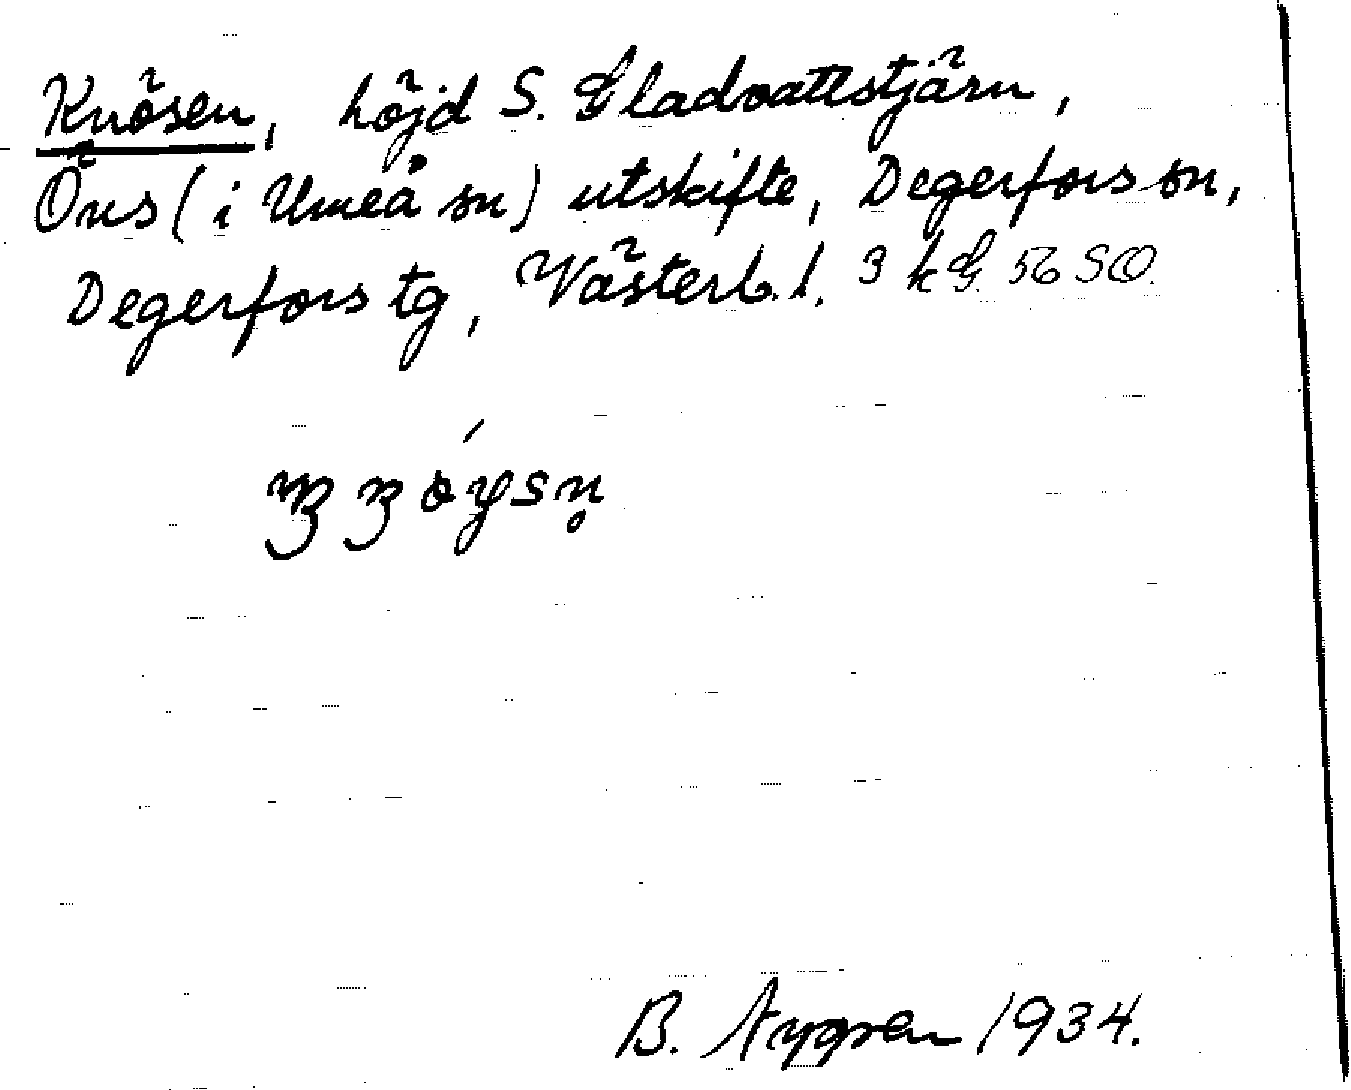 Knösen, höjd S. Gladvattstjärn,
Öns (i Umeå sn) utskifte, Degerfors sn,
Degerfors tg, Västerb. l. 3 k G 56 SO.
B. Nygren 1934.